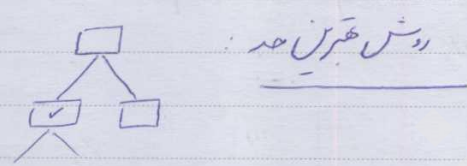 روش بهترین حد :